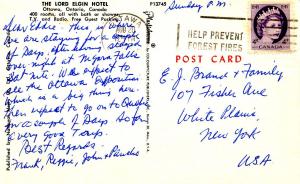 THE LORD ELGIN HOTEL
Ottawa, Ontario, Canada
400 rooms, all with bath or shower.
T.V. and Radio. Free Guest Parking.
P13745
Sunday P.M.
Dear Eddie: This is where
we are staying for a couple
of Days after having stayed
over night at Niagara Falls
last nite. Will expect to
see the Ottawa Exposition
which is a big thing here.
then expect to go on to Quebec
in a couple of Days. So far
a very good Trip.
Best Regards.
Frank, Reggie, John &
HELP PREVENT
FOREST FIRES
CANADA
POST CARD
E. J. Brand & Family
107 Fisher Ave
White Plains,
New York
USA